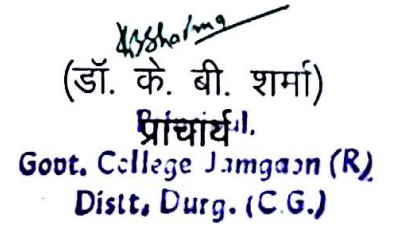 KBSharma
(डॉ. के. बी. शर्मा)
प्राचार्य
Principal,
Govt. College Jamgaon (R)
Distt. Durg. (C.G.)